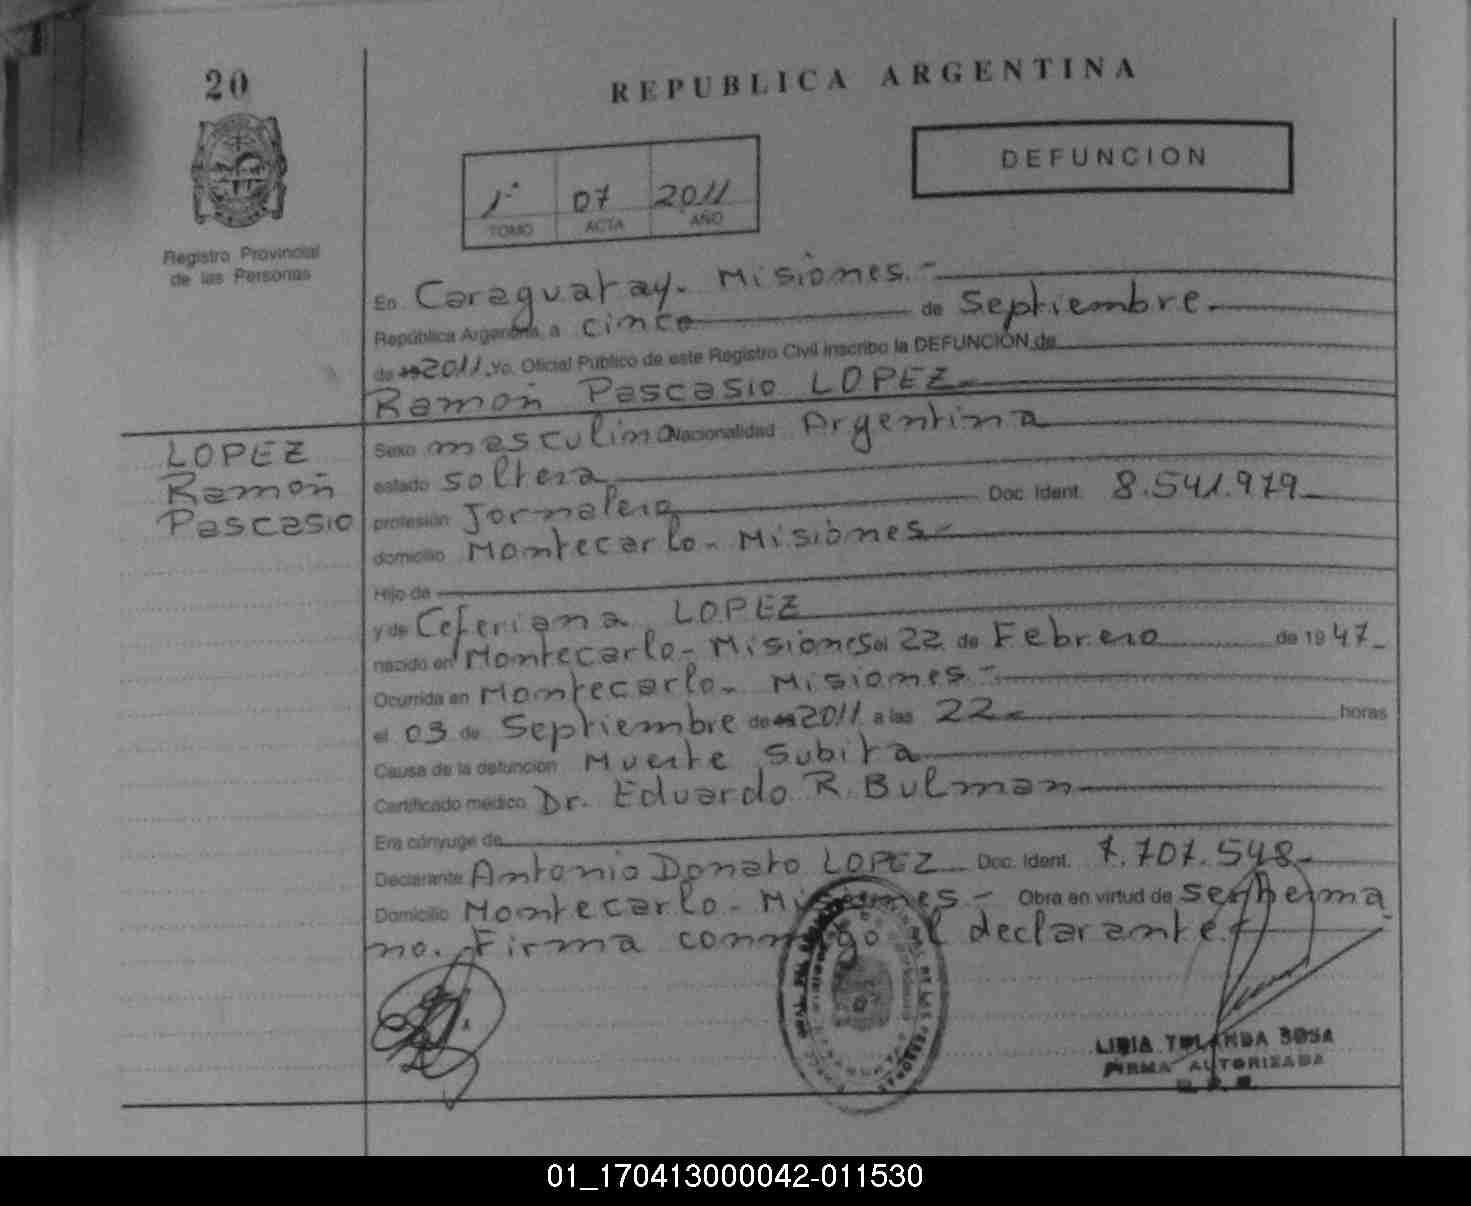 20
REPUBLICA ARGENTINA
DEFUNCION
1º 07 2011
TOMO ACTA AÑO
Registro Provincial
de las Personas
En Caraguatay. Misiones.-
República Argentina, a cinco de Septiembre.
de 19 2011. Yo, Oficial Público de este Registro Civil inscribo la DEFUNCIÓN de
Ramón Pascasio LOPEZ
LOPEZ
Ramón
Pascasio
Sexo masculino Nacionalidad Argentina
estado soltera
profesión Jornalero Doc. Ident. 8.541.979
domicilio Montecarlo - Misiones -
Hijo de
y de Ceferiana LOPEZ
nacido en Montecarlo - Misiones el 22 de Febrero de 19 47
Ocurrida en Montecarlo - Misiones -
el 03 de Septiembre de 19 2011 a las 22 horas
Causa de la defunción Muerte Subita
Certificado médico Dr. Eduardo R. Bulman
Era cónyuge de
Declarante Antonio Donato LOPEZ Doc. Ident. 7.707.548
Domicilio Montecarlo - Misiones - Obra en virtud de ser herma
no. Firma conmigo el declarante.
LIDIA YOLANDA SOSA
FIRMA AUTORIZADA
01_170413000042-011530